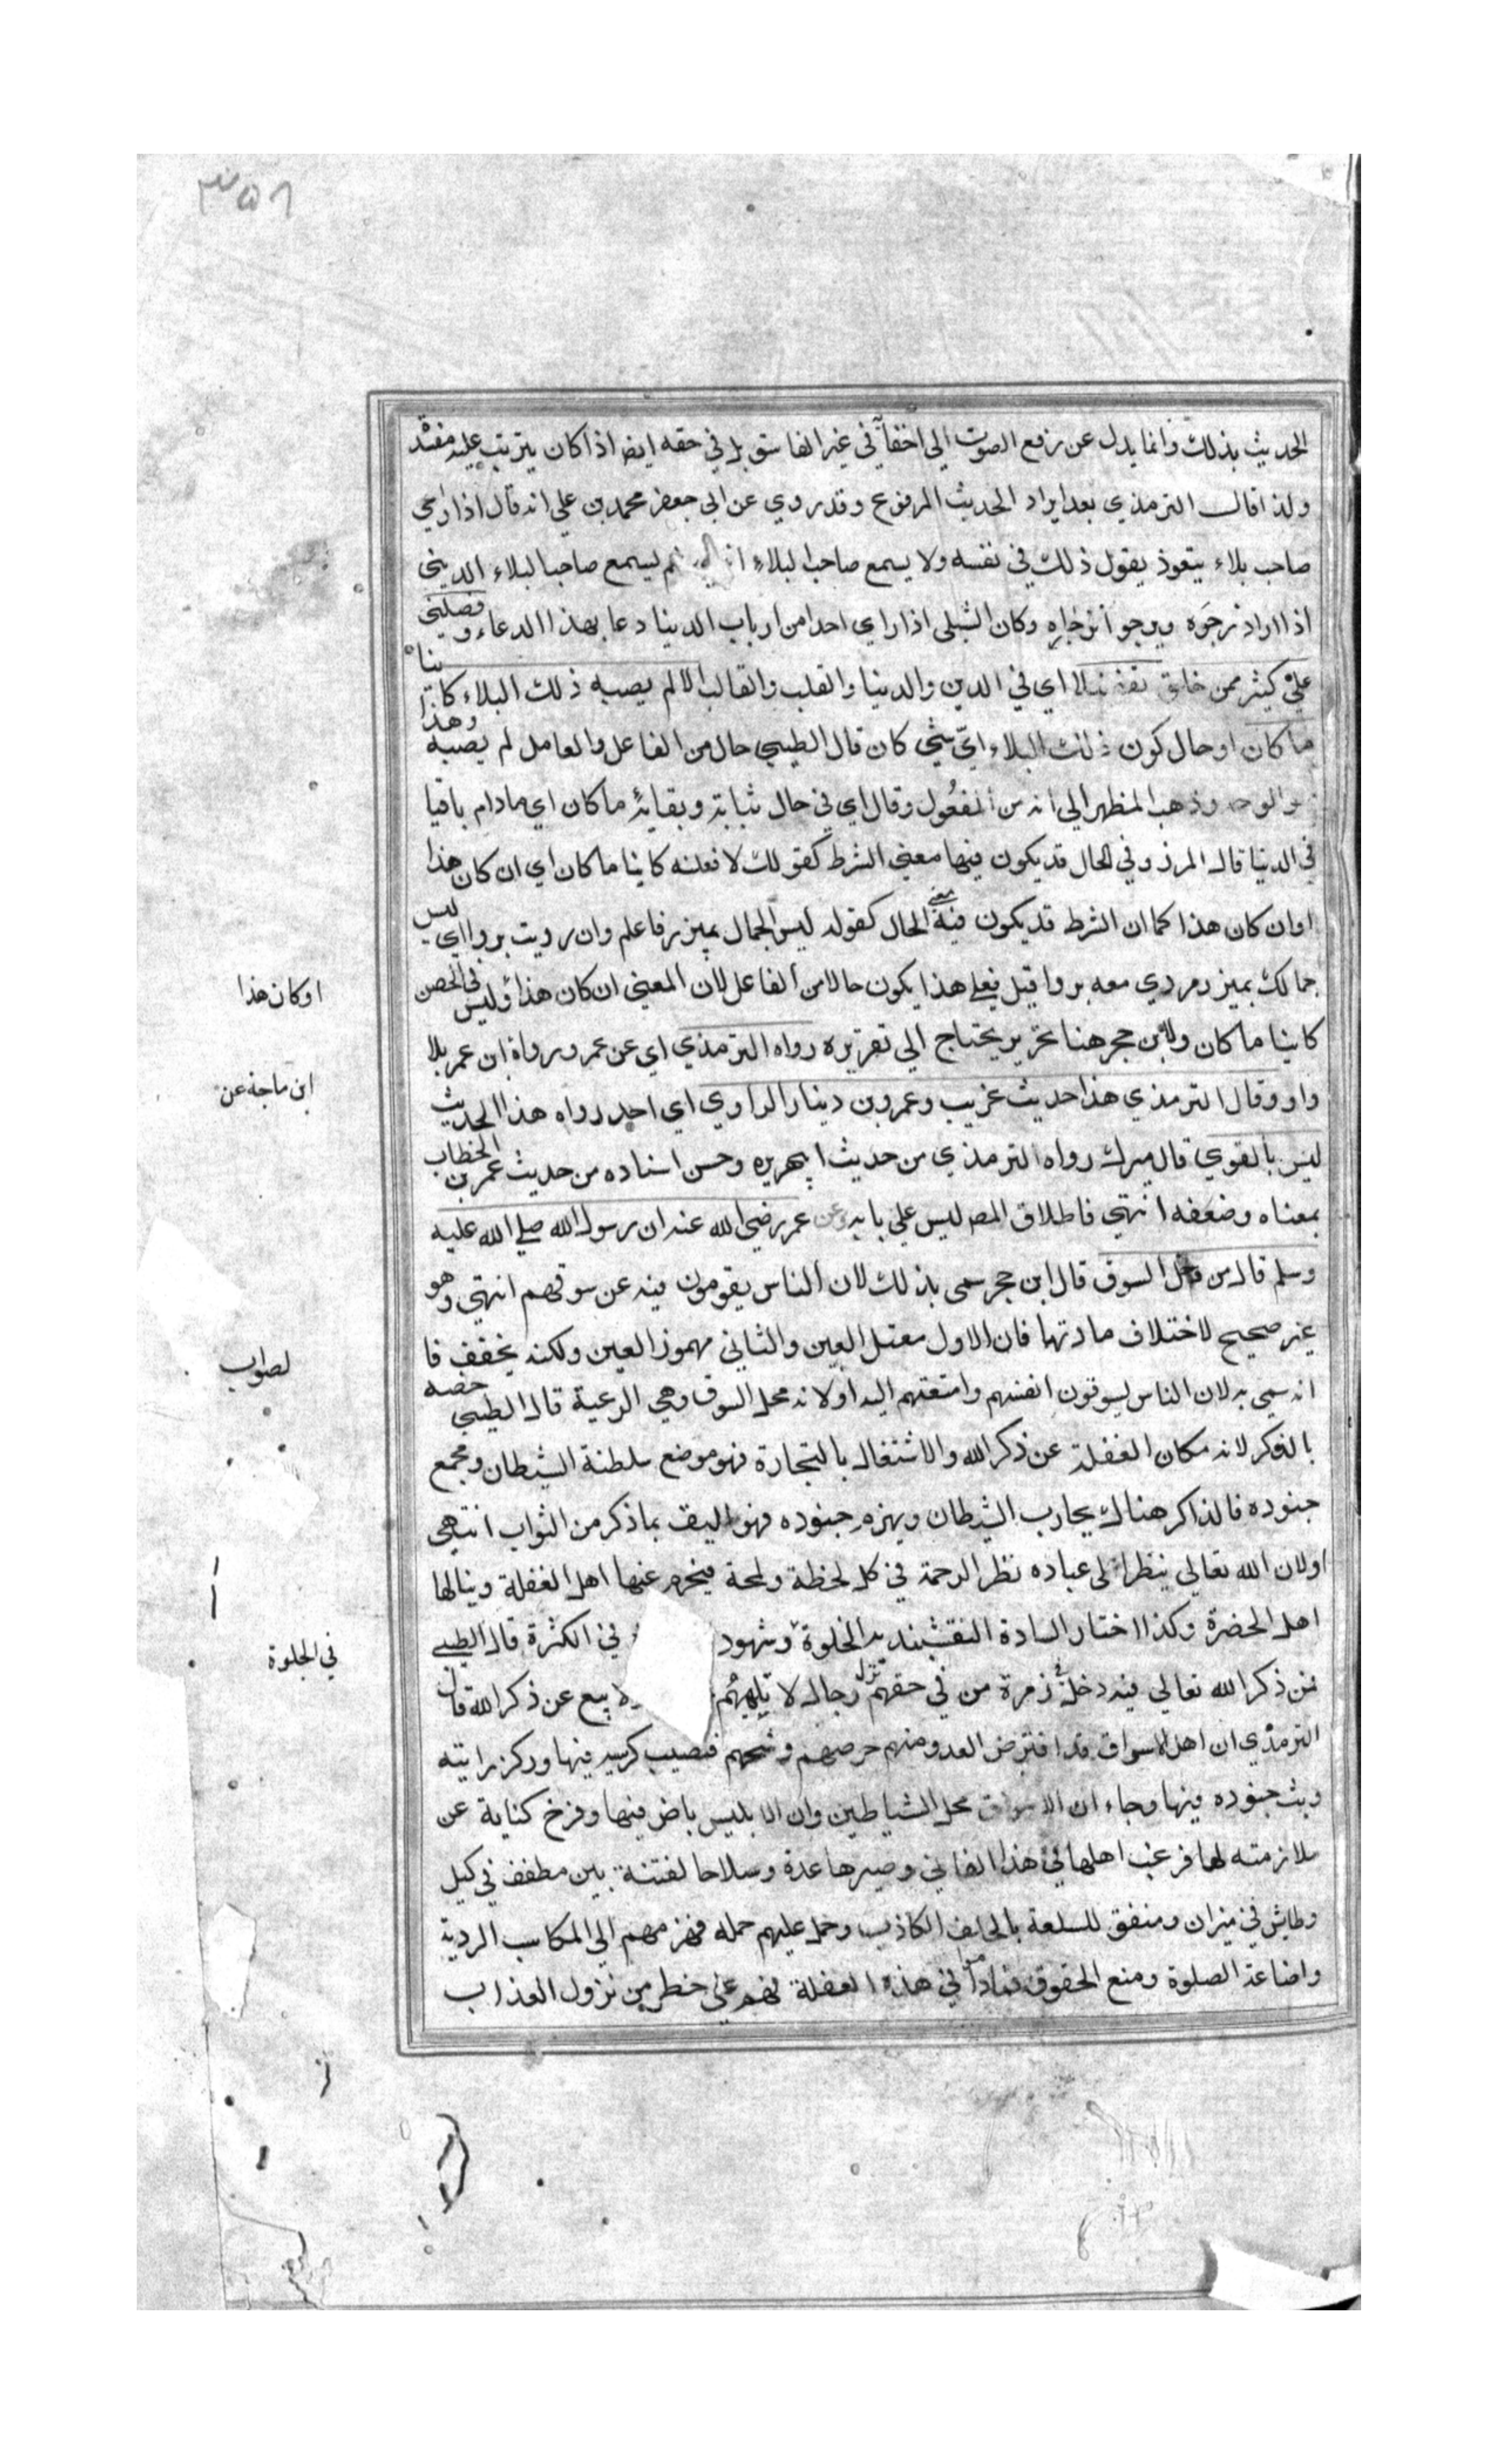 ٣٥٦
الحديث بذلك وانما يدل عن رفع الصوت الي اخفائه في غير الفاسق بل في حقه ايضا اذا كان يترتب عليه مفسدة
ولذا قال الترمذي بعد ايراد الحديث المرفوع وقد روي عن ابي جعفر محمد بن علي انه قال اذا راي
صاحب بلاء يتعوذ يقول ذلك في نفسه ولا يسمع صاحب البلاء يسمع صاحب البلاء الديني
اذا اراد زجره ويرجو انزجاره وكان الشبلي اذا راي احدا من ارباب الدنيا دعا بهذا الدعاء وفضلني
علي كثير ممن خلق تفضيلا اي في الدين والدنيا والقلب والقالب الا لم يصبه ذلك البلاء كائنا
ما كان اي حال كون ذلك البلاء اي شي كان قال الطيبي حال من الفاعل والعامل لم يصبه وهذا
هو الوجه وذهب المظهر الي انه من المفعول وقال اي في حال ثباته وبقائه ما كان اي مادام باقيا
في الدنيا قال المرزوقي الحال قد يكون فيها معني الشرط كقولك لافعلنه كاينا ما كان اي ان كان هذا
اوان كان هذا كما ان الشرط قد يكون فيه معني الحال كقوله ليس الجمال بميزر فاعلم وان رديت بردا اي ليس
جمالك بميزر مردي معه بردا قيل فعلي هذا يكون حالا من الفاعل لان المعني ان كان هذا وليس في الحصن
اوكان هذا
كاينا ما كان ولابن حجر هنا تحرير يحتاج الي تقريره رواه الترمذي اي عن عمر ورواه ابن عمر بلا
ابن ماجة عن
واو وقال الترمذي هذا حديث غريب وعمرو بن دينار الراوي اي احد رواه هذا الحديث
ليس بالقوي قال ميرك رواه الترمذي من حديث ابي هريره وحسن اسناده من حديث عمر بن الخطاب
بمعناه وضعفه انتهي فاطلاق المص ليس علي بابه وعن عمر رضي الله عنه ان رسول الله صلي الله عليه
وسلم قال من دخل السوق قال ابن حجر سمي بذلك لان الناس يقومون فيه عن سوقهم انتهي وهو
غير صحيح لاختلاف مادتهما فان الاول معتل العين والثاني مهموز العين ولكنه يخفف فا
لصواب
انه سمي به لان الناس يسوقون انفسهم وامتعتهم اليه اولانه محل السوق وهي الرعية قال الطيبي خصه
بالذكر لانه مكان الغفلة عن ذكر الله والاشتغال بالتجارة فهو موضع سلطنة الشيطان ومجمع
جنوده فالذاكر هناك يحارب الشيطان ويهزم جنوده فهو اليق بما ذكر من الثواب انتهي
اولان الله تعالي ينظر الي عباده نظر الرحمة في كل لحظة ولمحة فيحرم عنها اهل الغفلة وينالها
اهل الحضرة وكذا اختار السادة النقشبنديه الخلوة وشهود في الكثرة قال الطيبي
في الجلوة
فمن ذكر الله تعالي فيه دخل في زمرة من نزل في حقهم رجال لا تلهيهم ولا بيع عن ذكر الله قال
الترمذي ان اهل الاسواق قد افترض العدو منهم حرصهم وشحهم فنصب كرسيه فيها وركز رايته
وبث جنوده فيها وجاء ان الاسواق محل الشياطين وان الابليس باض فيها وفرخ كناية عن
ملازمته لها فرغب اهلها في هذا الفاني وصيرها عدة وسلاحا لفتنة بين مطفف في كيل
وطايش في ميزان ومنفق للسلعة بالحلف الكاذب وحمل عليهم حمله فهزمهم الي المكاسب الردية
واضاعة الصلوة ومنع الحقوق فماداموا في هذه الغفلة فهم علي خطر من نزول العذاب